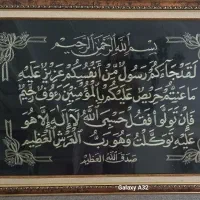 بسم الله الرحمن الرحيم
لقد جاءكم رسول من أنفسكم عزيز عليه
ما عنتم حريص عليكم بالمؤمنين رءوف رحيم
فإن تولوا فقل حسبي الله لا إله إلا هو
عليه توكلت وهو رب العرش العظيم
صدق الله العظيم
Galaxy A32